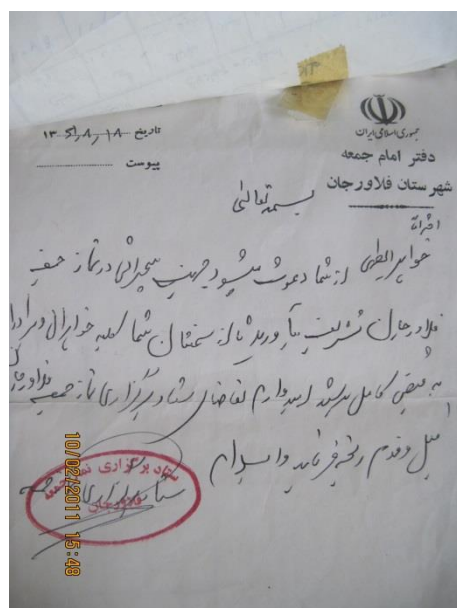 جمهوری اسلامی ایران
دفتر امام جمعه
شهرستان فلاورجان
تاریخ ۱۸/۸/۱۳۶۱
پیوست
بسمه تعالی
خواهر از شما دعوت میشود جهت سخنرانی در نماز جمعه
فلاورجان تشریف بیاورید تا از سخنان شما کلیه خواهران و برادران
به فیض کامل برسند امیدوارم تقاضای ستاد برگزاری نماز جمعه فلاورجان
قبول و قدم رنجه فرمائید والسلام
ستاد برگزاری نماز جمعه
فلاورجان
10/02/2011 15:48